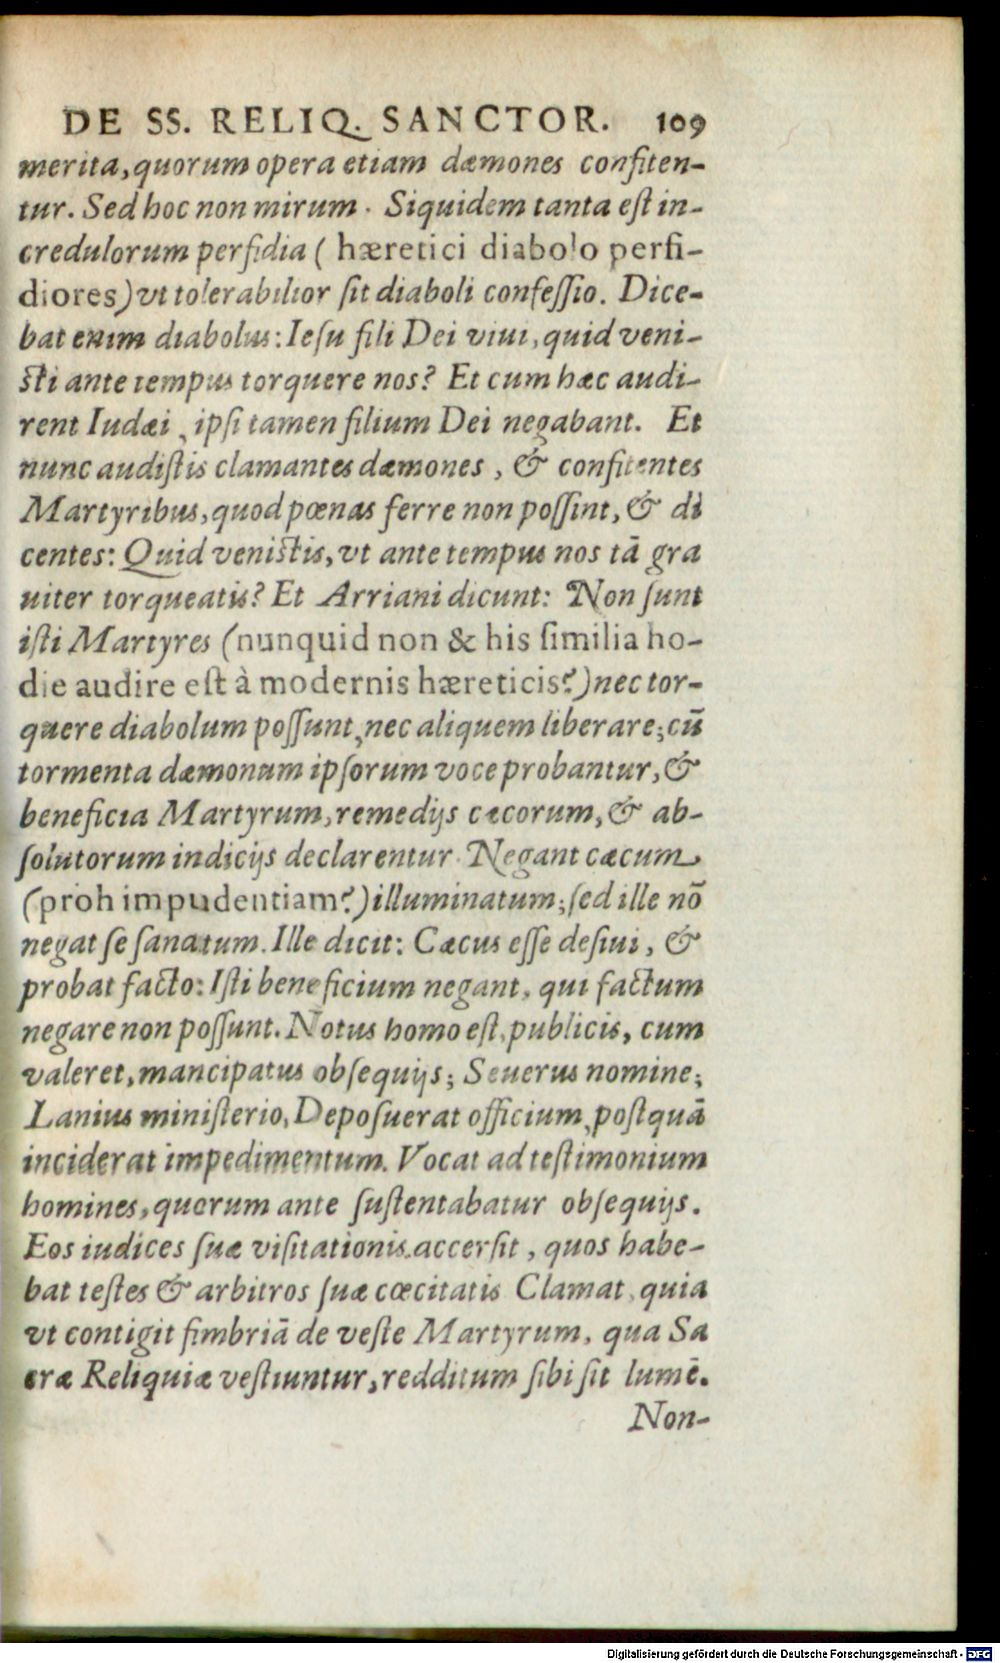 DE SS. RELIQ. SANCTOR. 109
merita, quorum opera etiam dæmones confiten-
tur. Sed hoc non mirum. Siquidem tanta eſt in-
credulorum perfidia ( hæretici diabolo perfi-
diores) vt tolerabilior ſit diaboli confeſſio. Dice-
bat enim diabolus: Ieſu fili Dei viui, quid veni-
ſti ante tempus torquere nos? Et cum hæc audi-
rent Iudæi, ipſi tamen filium Dei negabant. Et
nunc audiſtis clamantes dæmones, & confitentes
Martyribus, quod pœnas ferre non poſſint, & di
centes: Quid veniſtis, vt ante tempus nos tā gra
uiter torqueatis? Et Arriani dicunt: Non ſunt
iſti Martyres (nunquid non & his ſimilia ho-
die audire eſt à modernis hæreticis?) nec tor-
quere diabolum poſſunt, nec aliquem liberare; cū
tormenta dæmonum ipſorum voce probantur, &
beneficia Martyrum, remedijs cæcorum, & ab-
ſolutorum indicijs declarentur. Negant cæcum
(proh impudentiam?) illuminatum; ſed ille nō
negat ſe ſanatum. Ille dicit: Cæcus eſſe deſiui, &
probat facto: Iſti beneficium negant, qui factum
negare non poſſunt. Notus homo eſt, publicis, cum
valeret, mancipatus obſequijs; Seuerus nomine;
Lanius miniſterio, Depoſuerat officium, poſtquā
inciderat impedimentum. Vocat ad teſtimonium
homines, quorum ante ſuſtentabatur obſequijs.
Eos iudices ſuæ viſitationis accerſit, quos habe-
bat teſtes & arbitros ſuæ cœcitatis Clamat, quia
vt contigit fimbriā de veſte Martyrum, qua Sa
cræ Reliquiæ veſtiuntur, redditum ſibi ſit lumē.
Non-
Digitalisierung gefördert durch die Deutsche Forschungsgemeinschaft - DFG